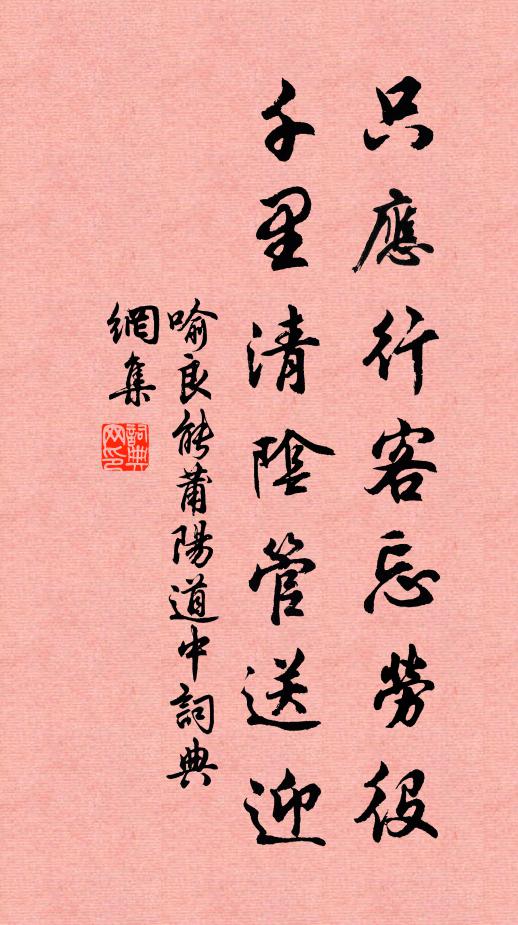 只應行客忘勞役
千里清陰管送迎
喻良能莆陽道中詞典
網集
詞典
网印